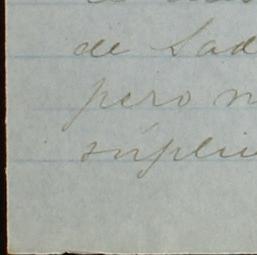 de Sad
pero n
súpli